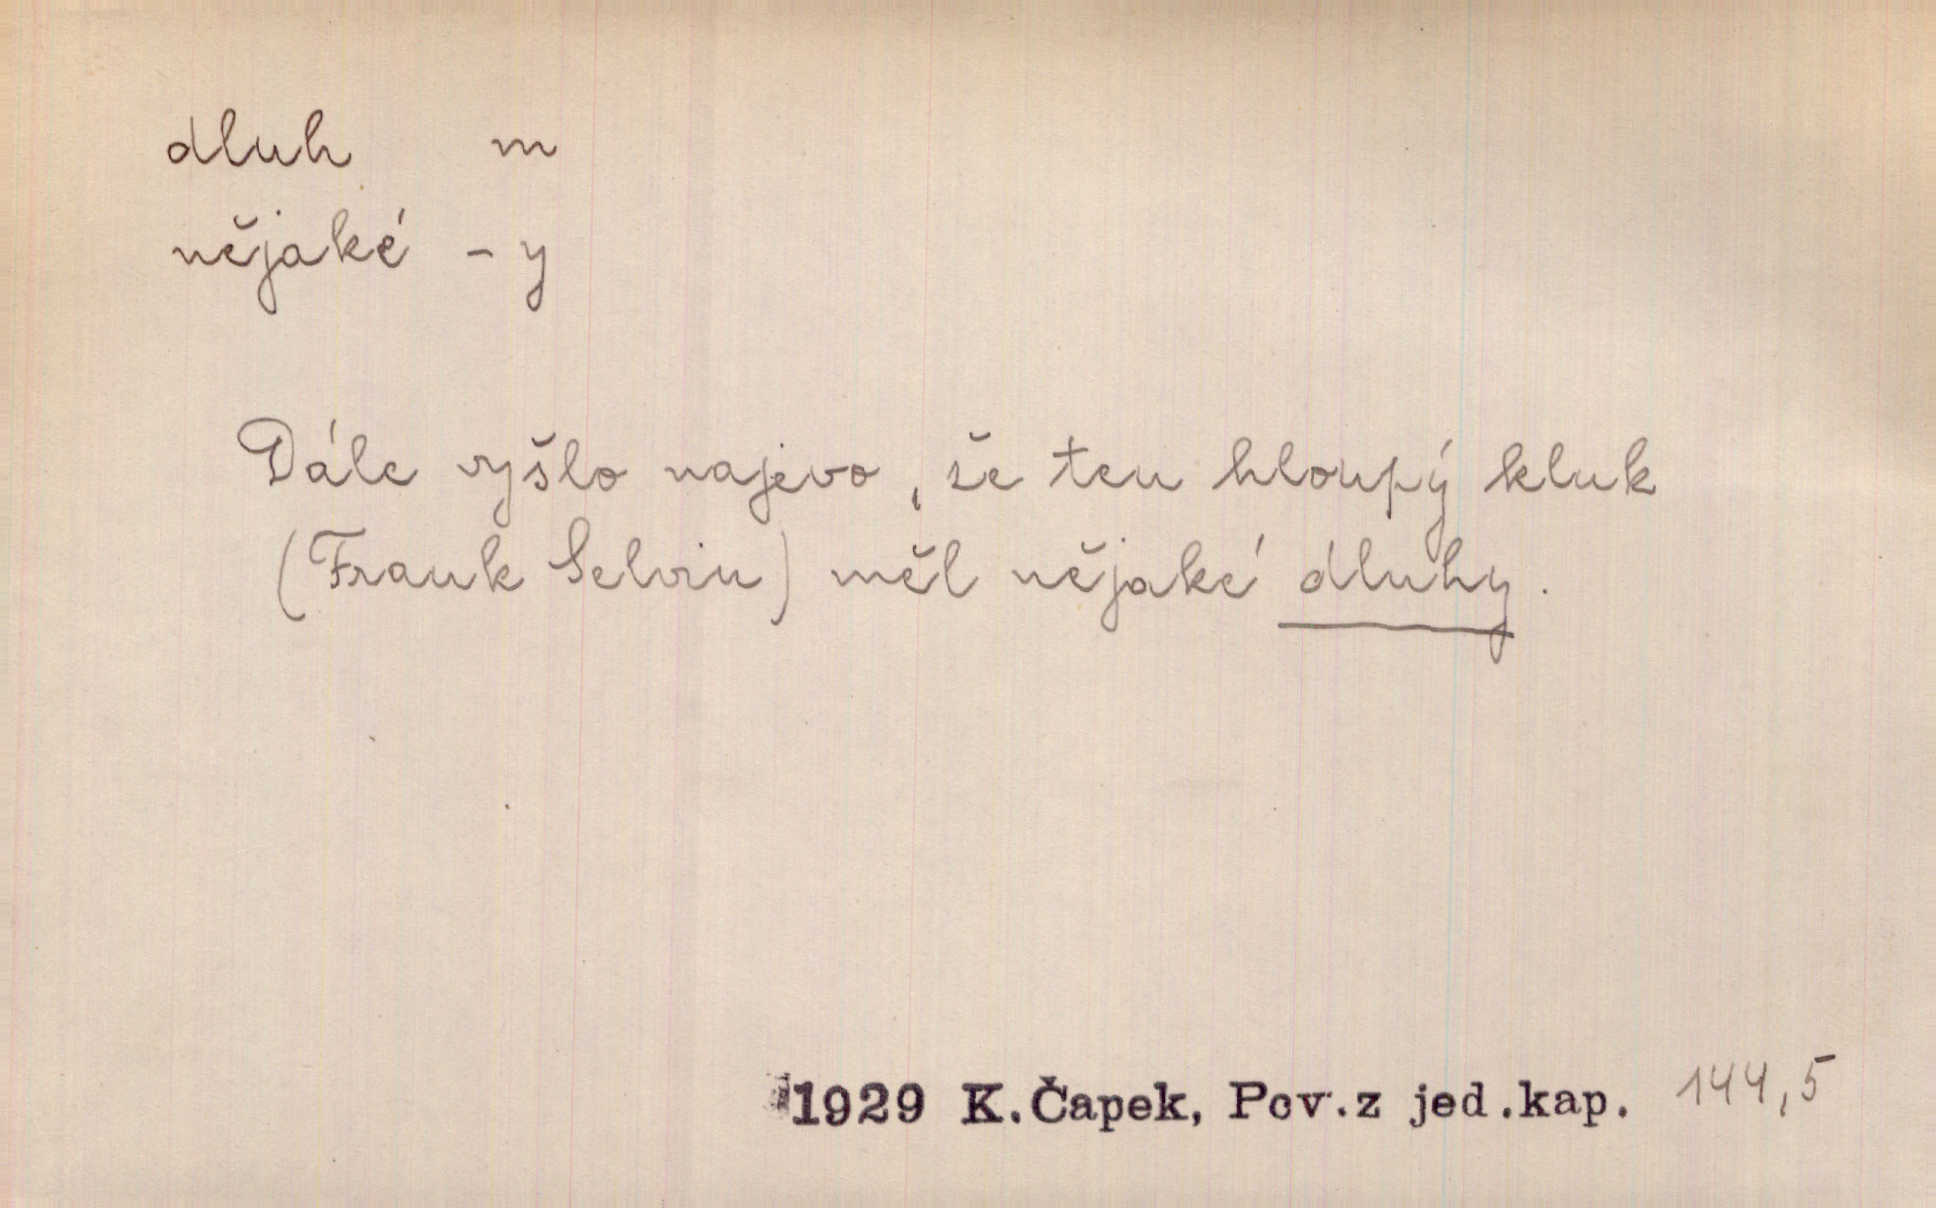 dluh m
nějaké -y
Dále vyšlo najevo, že ten hloupý kluk
(Frank Selvin) měl nějaké dluhy.
1929 K.Čapek, Pov.z jed.kap. 144,5